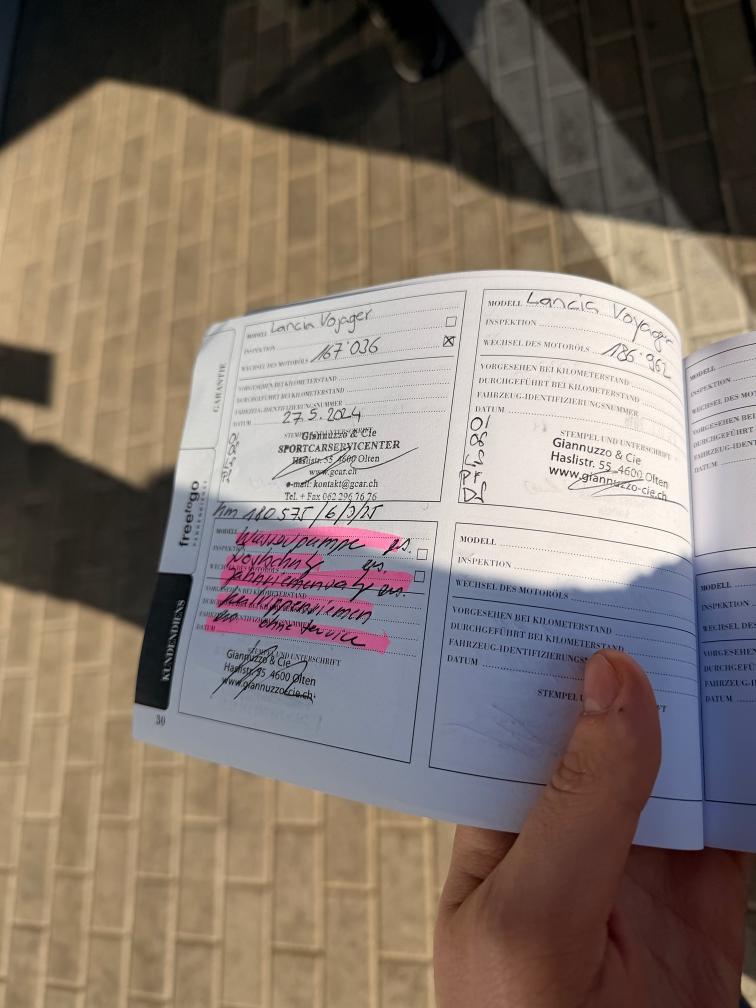 GARANTIE
freetogo
PANNENDIENST
KUNDENDIENST
30
MODELL Lancia Voyager
INSPEKTION
WECHSEL DES MOTORÖLS 167'036
VORGESEHEN BEI KILOMETERSTAND
DURCHGEFÜHRT BEI KILOMETERSTAND
FAHRZEUG-IDENTIFIZIERUNGSNUMMER
DATUM 27.5.2024
STEMPEL UND UNTERSCHRIFT
Giannuzzo & Cie
SPORTCARSERVICENTER
Haslistr. 55, 4600 Olten
www.gcar.ch
e-mail: kontakt@gcar.ch
Tel. + Fax 062 296 76 76
km 180575/6/3/25
MODELL Wasserpumpe ers.
INSPEKTION
WECHSEL DES MOTORÖLS
VORGESEHEN
DURCHGEFÜHRT BEI KILOMETERSTAND Keilrippenriemen
FAHRZEUG-IDENTIFIZIERUNGSNUMMER
DATUM ohne Service
STEMPEL UND UNTERSCHRIFT
Giannuzzo & Cie
Haslistr. 55 4600 Olten
www.giannuzzo-cie.ch
MODELL Lancia Voyager
INSPEKTION
WECHSEL DES MOTORÖLS 186'962
VORGESEHEN BEI KILOMETERSTAND
DURCHGEFÜHRT BEI KILOMETERSTAND
FAHRZEUG-IDENTIFIZIERUNGSNUMMER
DATUM
STEMPEL UND UNTERSCHRIFT
Giannuzzo & Cie
Haslistr. 55 4600 Olten
www.giannuzzo-cie.ch
MODELL
INSPEKTION
WECHSEL DES MOTORÖLS
VORGESEHEN BEI KILOMETERSTAND
DURCHGEFÜHRT BEI KILOMETERSTAND
FAHRZEUG-IDENTIFIZIERUNGS
DATUM
STEMPEL U
FT
MODELL
INSPEKTION
WECHSEL DES MO
VORGESEHEN BEI
DURCHGEFÜHRT
FAHRZEUG-IDENT
DATUM
MODELL
INSPEKTION
WECHSEL DES
VORGESEHEN
DURCHGEFÜ
FAHRZEUG-I
DATUM